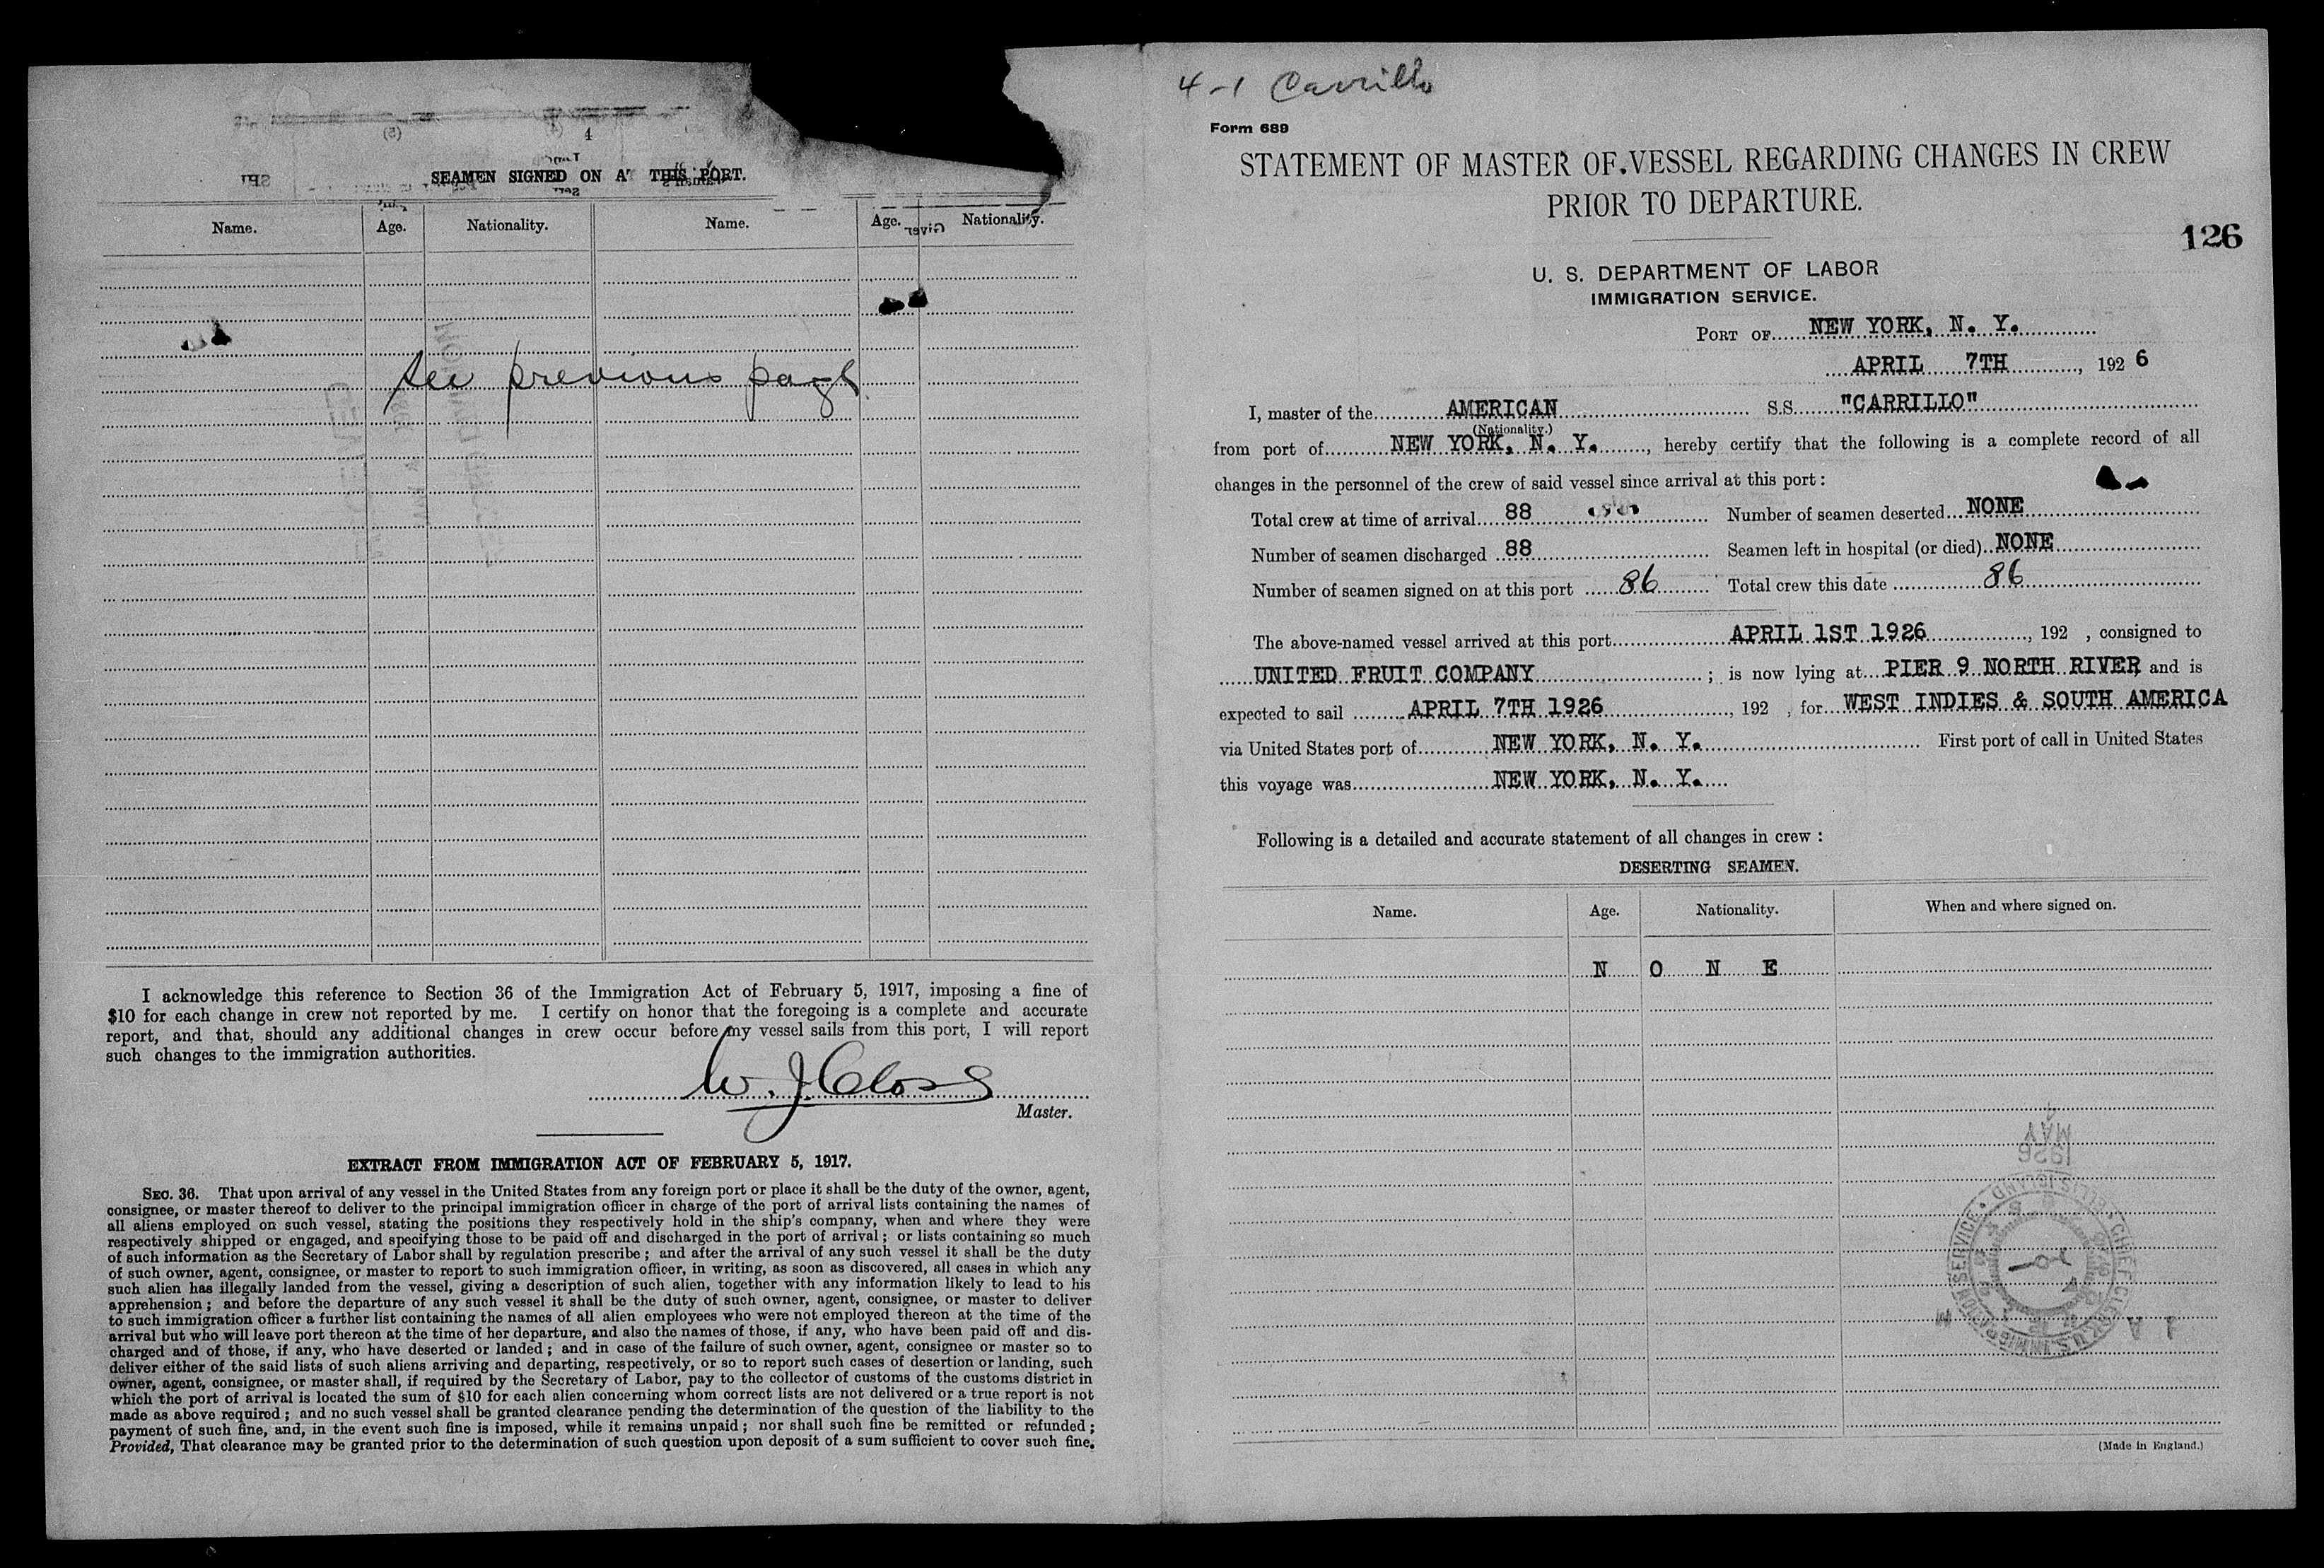 4
SEAMEN SIGNED ON AT THIS PORT.
Name. Age. Nationality. Name. Age. Nationality.
See previous page
I acknowledge this reference to Section 36 of the Immigration Act of February 5, 1917, imposing a fine of
$10 for each change in crew not reported by me. I certify on honor that the foregoing is a complete and accurate
report, and that, should any additional changes in crew occur before my vessel sails from this port, I will report
such changes to the immigration authorities.
W. J. Closs
Master.
EXTRACT FROM IMMIGRATION ACT OF FEBRUARY 5, 1917.
SEC. 36. That upon arrival of any vessel in the United States from any foreign port or place it shall be the duty of the owner, agent,
consignee, or master thereof to deliver to the principal immigration officer in charge of the port of arrival lists containing the names of
all aliens employed on such vessel, stating the positions they respectively hold in the ship's company, when and where they were
respectively shipped or engaged, and specifying those to be paid off and discharged in the port of arrival; or lists containing so much
of such information as the Secretary of Labor shall by regulation prescribe; and after the arrival of any such vessel it shall be the duty
of such owner, agent, consignee, or master to report to such immigration officer, in writing, as soon as discovered, all cases in which any
such alien has illegally landed from the vessel, giving a description of such alien, together with any information likely to lead to his
apprehension; and before the departure of any such vessel it shall be the duty of such owner, agent, consignee, or master to deliver
to such immigration officer a further list containing the names of all alien employees who were not employed thereon at the time of the
arrival but who will leave port thereon at the time of her departure, and also the names of those, if any, who have been paid off and dis-
charged and of those, if any, who have deserted or landed; and in case of the failure of such owner, agent, consignee or master so to
deliver either of the said lists of such aliens arriving and departing, respectively, or so to report such cases of desertion or landing, such
owner, agent, consignee, or master shall, if required by the Secretary of Labor, pay to the collector of customs of the customs district in
which the port of arrival is located the sum of $10 for each alien concerning whom correct lists are not delivered or a true report is not
made as above required; and no such vessel shall be granted clearance pending the determination of the question of the liability to the
payment of such fine, and, in the event such fine is imposed, while it remains unpaid; nor shall such fine be remitted or refunded;
Provided, That clearance may be granted prior to the determination of such question upon deposit of a sum sufficient to cover such fine.
4-1 Carrillo
Form 689
STATEMENT OF MASTER OF VESSEL REGARDING CHANGES IN CREW
PRIOR TO DEPARTURE.
126
U. S. DEPARTMENT OF LABOR
IMMIGRATION SERVICE.
PORT OF NEW YORK, N. Y.
APRIL 7TH, 1926
I, master of the AMERICAN S.S. "CARRILLO"
(Nationality.)
from port of NEW YORK, N. Y., hereby certify that the following is a complete record of all
changes in the personnel of the crew of said vessel since arrival at this port:
Total crew at time of arrival 88 Number of seamen deserted NONE
Number of seamen discharged 88 Seamen left in hospital (or died) NONE
Number of seamen signed on at this port 86 Total crew this date 86
The above-named vessel arrived at this port APRIL 1ST 1926, 192 , consigned to
UNITED FRUIT COMPANY; is now lying at PIER 9 NORTH RIVER, and is
expected to sail APRIL 7TH 1926, 192 , for WEST INDIES & SOUTH AMERICA
via United States port of NEW YORK, N. Y. First port of call in United States
this voyage was NEW YORK, N. Y.
Following is a detailed and accurate statement of all changes in crew:
DESERTING SEAMEN.
Name. Age. Nationality. When and where signed on.
N O N E
1926
MAY
(Made in England.)